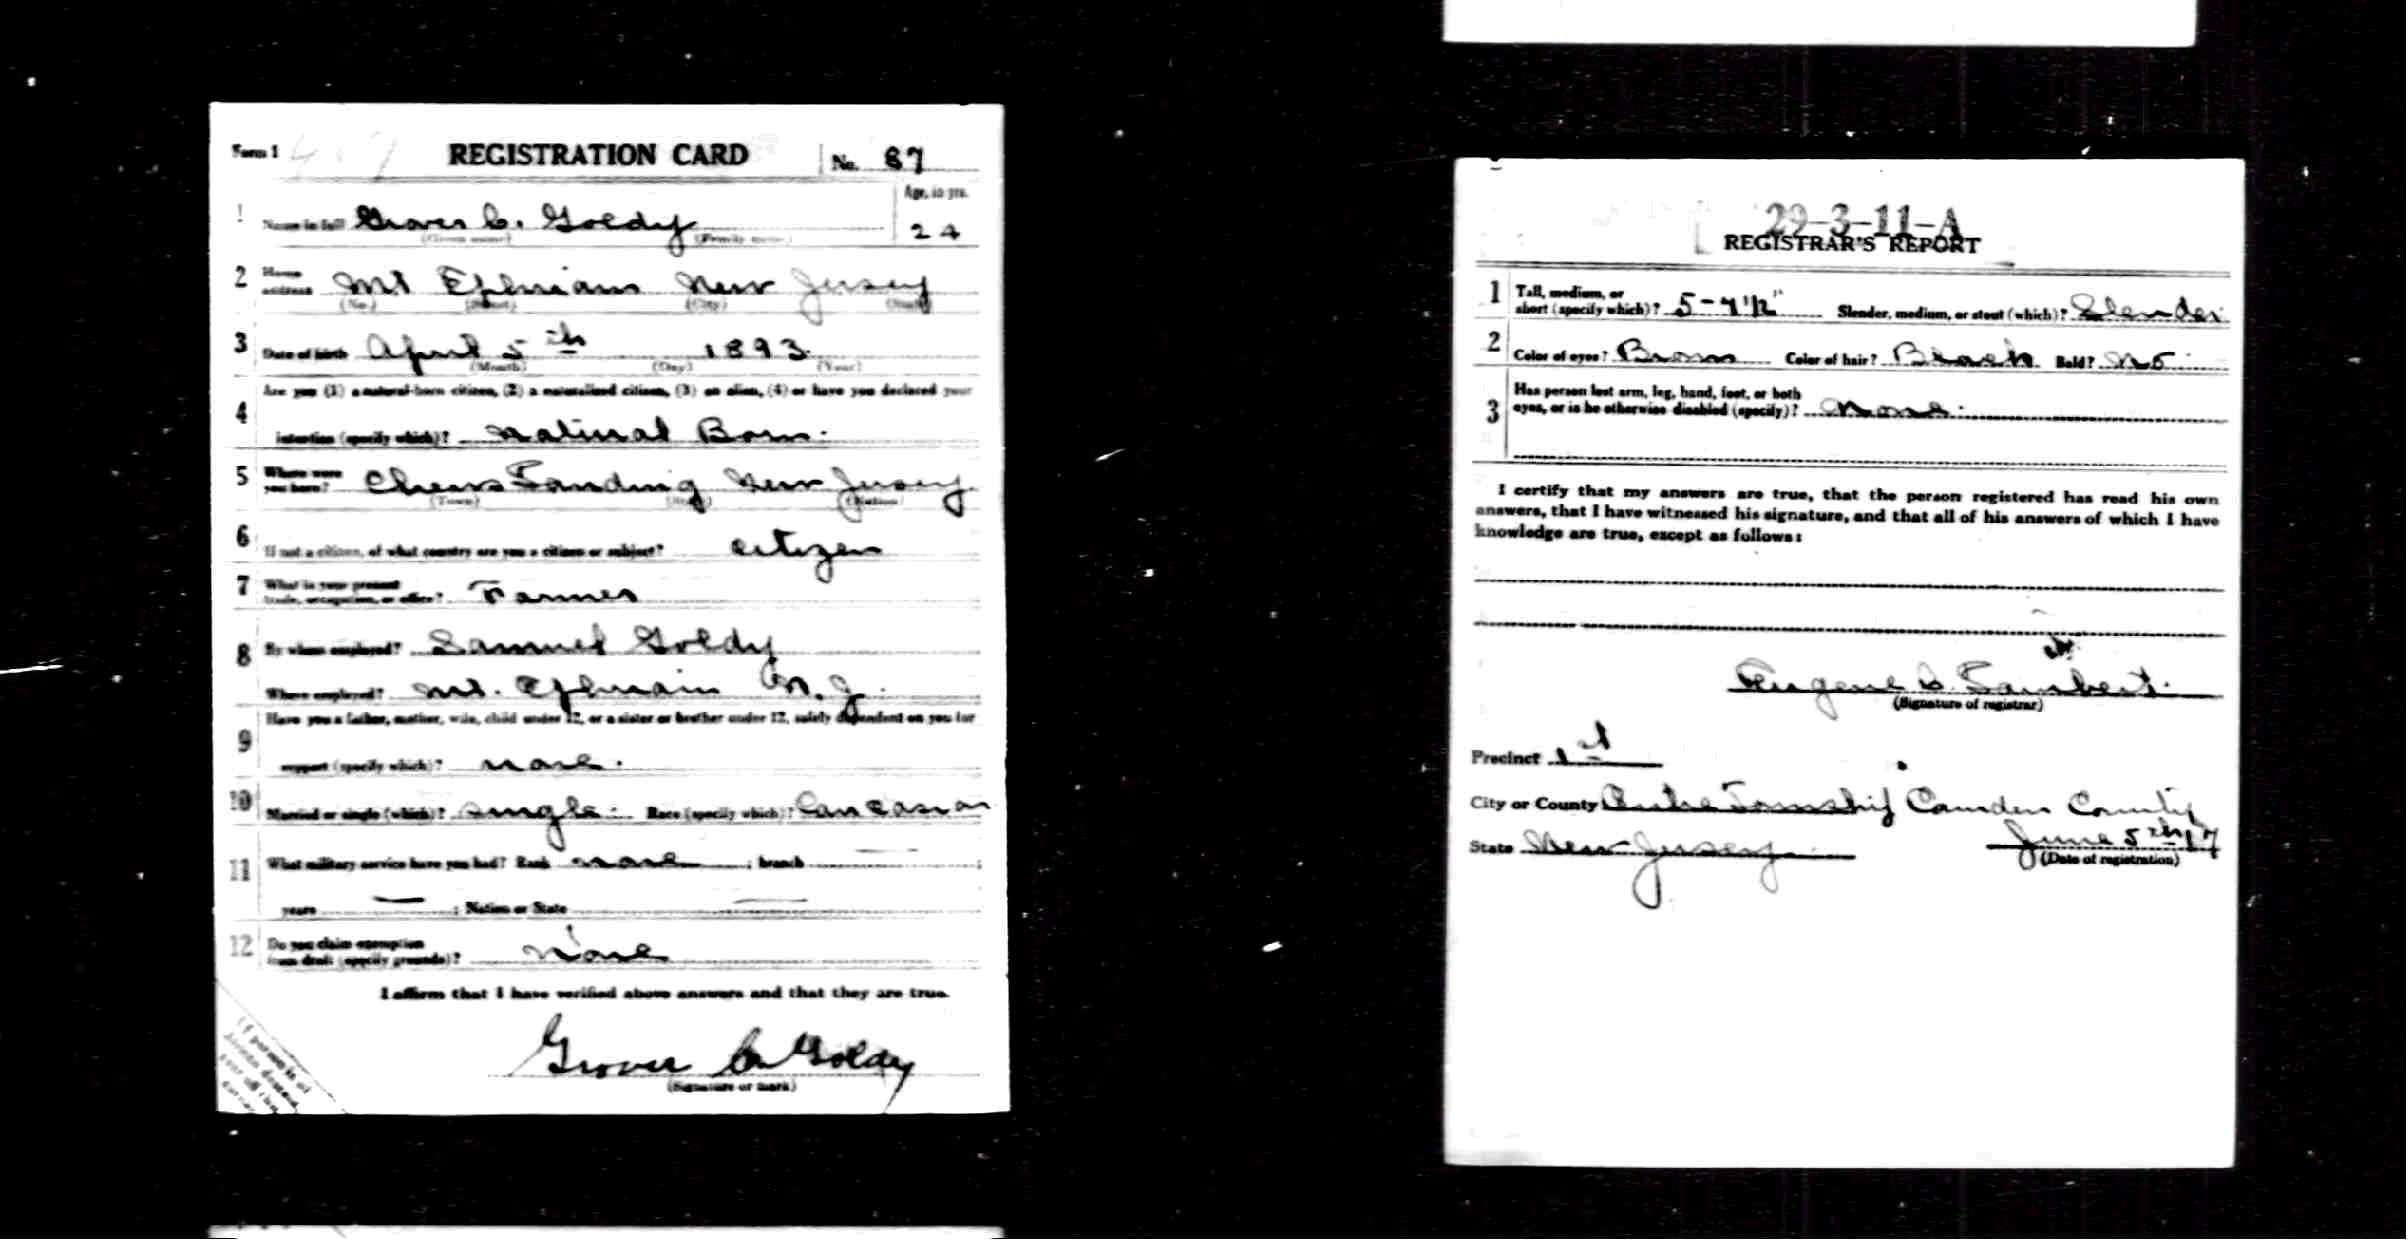 Form 1
REGISTRATION CARD No. 87
Age, in yrs.
1 Name in full Grover C. Goldy 24
(Given name) (Family name)
2 Home address Mt Ephriam New Jersey
(No.) (Street) (City) (State)
3 Date of birth April 5th 1893
(Month) (Day) (Year)
Are you (1) a natural-born citizen, (2) a naturalized citizen, (3) an alien, (4) or have you declared your
4 intention (specify which)? Natural Born.
5 Where were you born? Chews Landing New Jersey
(Town) (State) (Nation)
6 If not a citizen, of what country are you a citizen or subject? Citizen
7 What is your present trade, occupation, or office? Farmer
8 By whom employed? Samuel Goldy
Where employed? Mt. Ephraim N.J.
9 Have you a father, mother, wife, child under 12, or a sister or brother under 12, solely dependent on you for
support (specify which)? None.
10 Married or single (which)? Single. Race (specify which)? Caucasian
11 What military service have you had? Rank None ; branch — ;
years — ; Nation or State —
12 Do you claim exemption from draft (specify grounds)? None
I affirm that I have verified above answers and that they are true.
Grover C. Goldy
(Signature or mark)
29-3-11-A
REGISTRAR'S REPORT
1 Tall, medium, or short (specify which)? Slender, medium, or stout (which)? Slender
2 Color of eyes? Brown Color of hair? Black Bald? No
3 Has person lost arm, leg, hand, foot, or both
eyes, or is he otherwise disabled (specify)? None.
I certify that my answers are true, that the person registered has read his own
answers, that I have witnessed his signature, and that all of his answers of which I have
knowledge are true, except as follows:
Eugene Lambert
(Signature of registrar)
Precinct 1st
City or County Township Camden County
State New Jersey June 5th 17
(Date of registration)